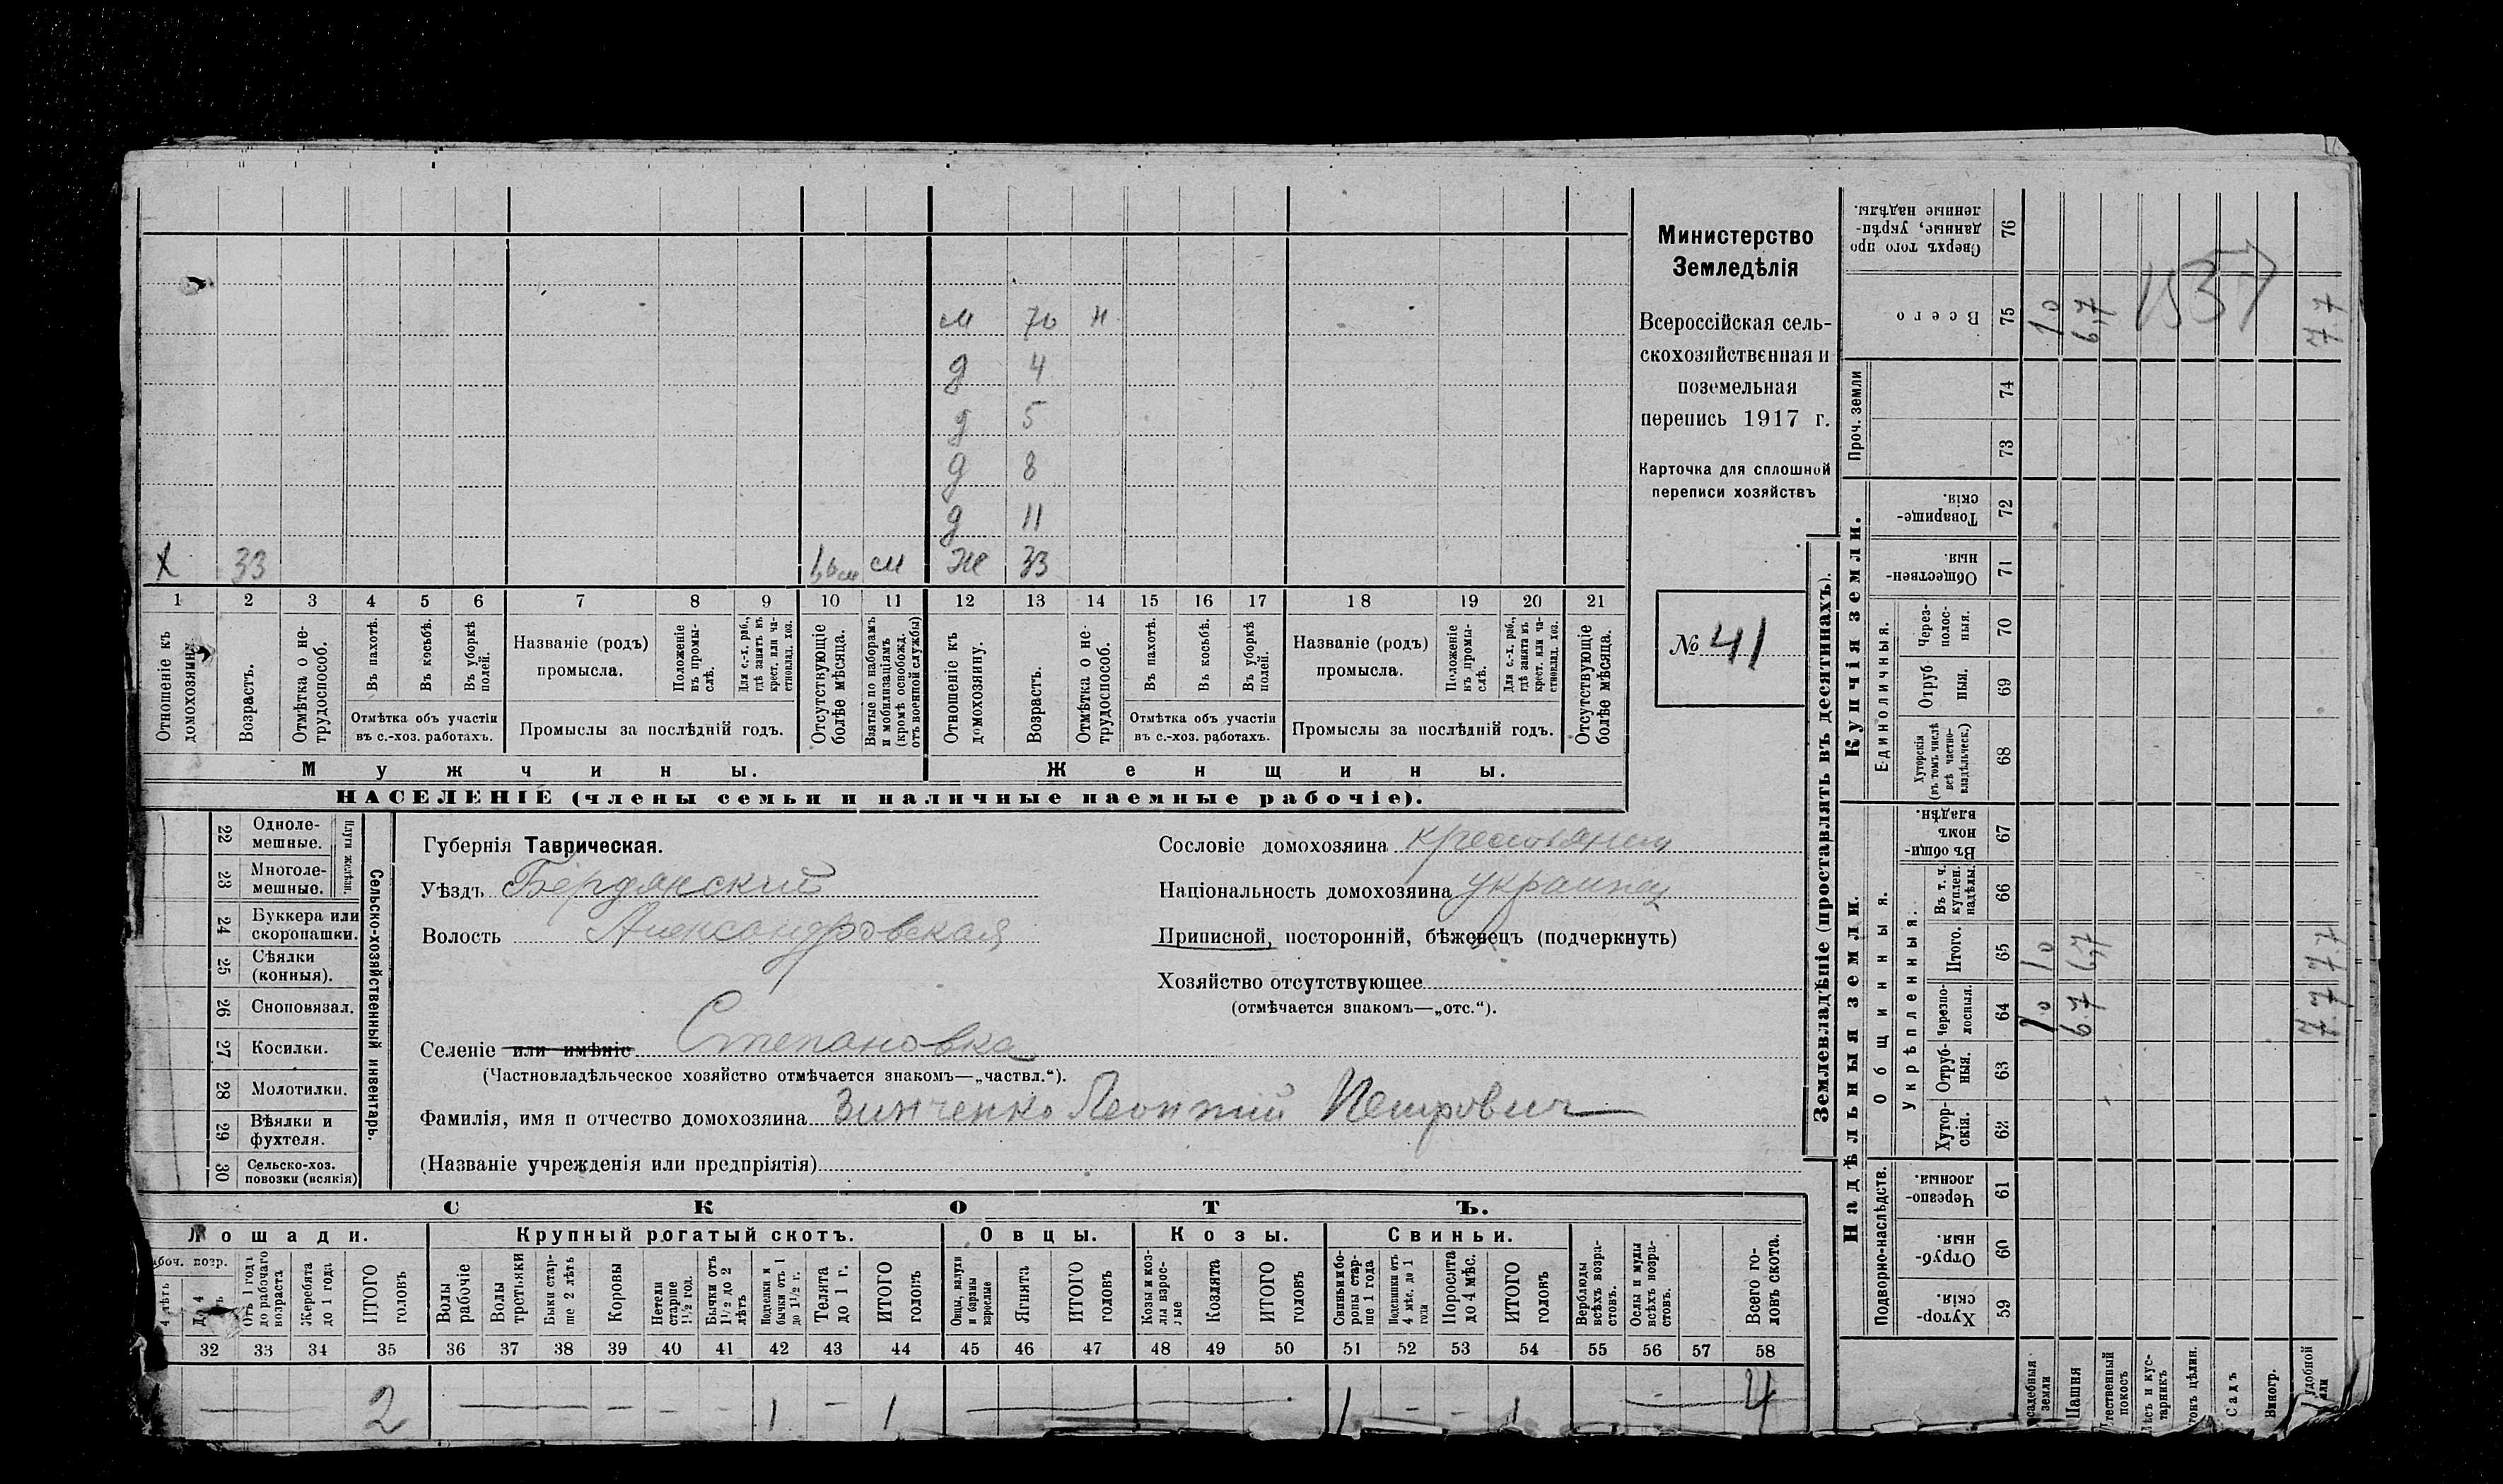 м 70 н
д 4
д 5
д 8
д 11
х 33 см ж 33
1 2 3 4 5 6 7 8 9 10 11 12 13 14 15 16 17 18 19 20 21
Отношеніе къ домохозяину.
Возрастъ.
Отмѣтка о нетрудоспособ.
Въ пахотѣ.
Въ косьбѣ.
Въ уборкѣ полей.
Отмѣтка объ участіи
въ с.-хоз. работахъ.
Названіе (родъ)
промысла.
Положеніе въ промыслѣ.
Для с.-х. раб., гдѣ занятъ въ крест. или частновлад. хоз.
Промыслы за послѣдній годъ.
Отсутствующіе болѣе мѣсяца.
Взятые по наборамъ и мобилизаціямъ (кромѣ освобожд. отъ военной службы)
Отношеніе къ домохозяину.
Возрастъ.
Отмѣтка о нетрудоспособ.
Въ пахотѣ.
Въ косьбѣ.
Въ уборкѣ полей.
Отмѣтка объ участіи
въ с.-хоз. работахъ.
Названіе (родъ)
промысла.
Положеніе въ промыслѣ.
Для с.-х. раб., гдѣ занята въ крест. или частновлад. хоз.
Промыслы за послѣдній годъ.
Отсутствующіе болѣе мѣсяца.
Мужчины.
Женщины.
НАСЕЛЕНІЕ (члены семьи и наличные наемные рабочіе).
Министерство
Земледѣлія
Всероссійская сель-
скохозяйственная и
поземельная
перепись 1917 г.
Карточка для сплошной
переписи хозяйствъ
№ 41
Сельско-хозяйственный инвентарь.
Плуги желѣзн.
22 Одноле-
мешные.
23 Многоле-
мешные.
24 Буккера или
скоропашки.
25 Сѣялки
(конныя).
26 Сноповязал.
27 Косилки.
28 Молотилки.
29 Вѣялки и
фухтеля.
30 Сельско-хоз.
повозки (всякія)
Губернія Таврическая.
Уѣздъ Бердянский
Волость Александровская
Селеніе или имѣніе Степановка
(Частновладѣльческое хозяйство отмѣчается знакомъ—„частвл.“).
Фамилія, имя и отчество домохозяина Зинченко Леонтий Петрович
(Названіе учрежденія или предпріятія)
Сословіе домохозяина крестьянин
Національность домохозяина украинец
Приписной, посторонній, бѣженецъ (подчеркнуть)
Хозяйство отсутствующее
(отмѣчается знакомъ—„отс.“).
СКОТЪ.
Лошади.
Крупный рогатый скотъ.
Овцы.
Козы.
Свиньи.
боч. возр.
4 лѣтъ
До 4
Отъ 1 года до рабочаго возраста
Жеребята до 1 года
ИТОГО головъ
Волы рабочіе
Волы третьяки
Быки старше 2 лѣтъ
Коровы
Нетели старше 1½ год.
Бычки отъ 1½ до 2 лѣтъ
Подтелки и бычки отъ 1 до 1½ г.
Телята до 1 г.
ИТОГО головъ
Овцы, валухи и бараны взрослые
Ягнята
ИТОГО головъ
Козы и козлы взрослые
Козлята
ИТОГО головъ
Свиньи и боровы старше 1 года
Подсвинки отъ 4 мѣс. до 1 года
Поросята до 4 мѣс.
ИТОГО головъ
Верблюды всѣхъ возрастовъ.
Ослы и мулы всѣхъ возрастовъ.
Всего головъ скота.
32 33 34 35 36 37 38 39 40 41 42 43 44 45 46 47 48 49 50 51 52 53 54 55 56 57 58
— 2 — — — — 1 — 1 — 1 — — 1 — 4
Землевладѣніе (проставлять въ десятинахъ).
Надѣльныя земли.
Купчія земли.
Проч. земли
Подворно-наслѣдств.
Общинныя.
Укрѣпленныя.
Единоличныя.
Хуторскія. 59
Отрубныя. 60
Черезполосныя. 61
Хуторскія. 62
Отрубныя. 63
Черезполосныя. 64
Итого. 65
Въ т. ч. куплен. надѣлы. 66
Въ общинномъ владѣн. 67
Хуторскія (въ томъ числѣ всѣ частновладѣльческ.) 68
Отрубныя. 69
Черезполосныя. 70
Общественныя. 71
Товарищескія. 72
73
74
Всего 75
Сверхъ того проданные, укрѣпленные надѣлы. 76
садебныя земли
Пашня
тественный покосъ
ѣсъ и кустарникъ
токъ цѣлин.
Садъ
Виногр.
удобной
1.0 6.7 7.7
1.0 6.7 7.7
1.0 6.7 7.7
1537